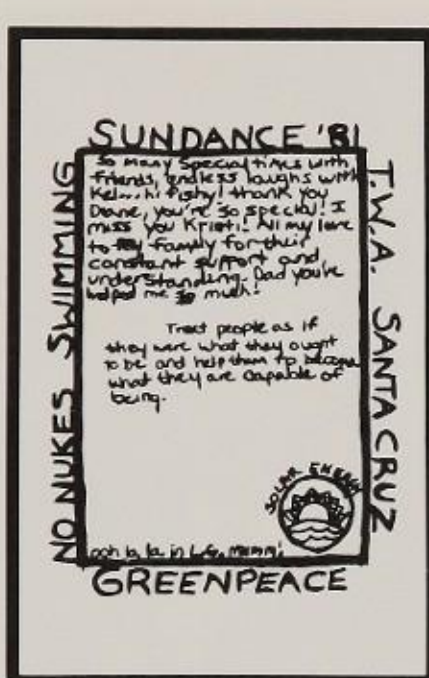 SUNDANCE '81
NO NUKES SWIMMING
T.W.A. SANTA CRUZ
So many special times with
friends, endless laughs with
Kel...hi fishy! thank you
Diane, you're so special! I
miss you Kristi! All my love
to my family for their
constant support and
understanding. Dad you've
helped me so much!
Treat people as if
they were what they ought
to be and help them to become
what they are capable of
being.
SOLAR ENERGY
ooh la la in
GREENPEACE